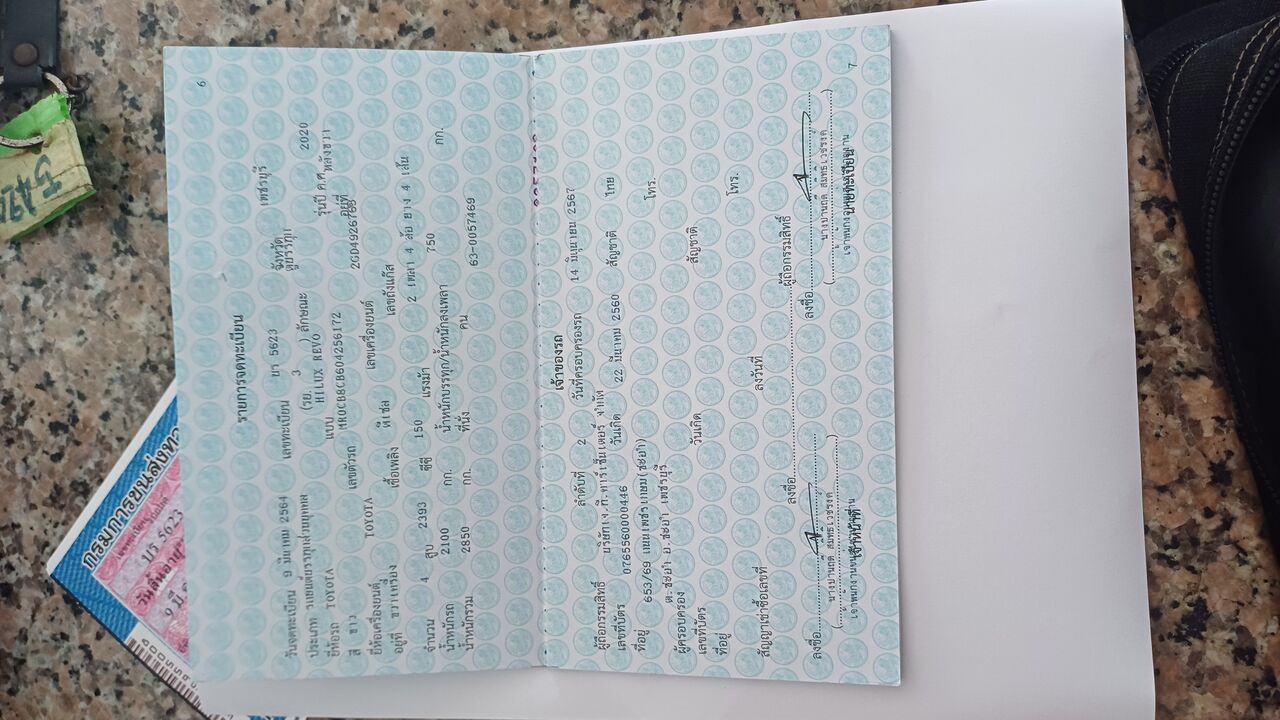 6
รายการจดทะเบียน
วันจดทะเบียน 9 มีนาคม 2564 เลขทะเบียน 5623 จังหวัด เพชรบุรี
ประเภท รถยนต์บรรทุกส่วนบุคคล (รย. 3 ) ลักษณะ
ยี่ห้อรถ TOYOTA แบบ HILUX REVO รุ่นปี ค.ศ. 2020
สี ขาว เลขตัวรถ MR0CB8CB604256172 อยู่ที่
ยี่ห้อเครื่องยนต์ TOYOTA เลขเครื่องยนต์
อยู่ที่ ขวาเครื่อง เชื้อเพลิง ดีเซล เลขถังแก๊ส
จำนวน 4 สูบ 2393 ซีซี 150 แรงม้า 2 เพลา 4 ล้อ ยาง 4 เส้น
น้ำหนักรถ 2100 กก. น้ำหนักบรรทุก/น้ำหนักลงเพลา 750 กก.
น้ำหนักรวม 2850 กก. ที่นั่ง คน 63-0057469
เจ้าของรถ
ลำดับที่ 2 วันที่ครอบครองรถ 14 มิถุนายน 2567
ผู้ถือกรรมสิทธิ์
เลขที่บัตร 0765560000446 วันเกิด 22 มีนาคม 2560 สัญชาติ ไทย
ที่อยู่ 653/69 โทร.
เพชรบุรี
ผู้ครอบครอง
เลขที่บัตร วันเกิด สัญชาติ
ที่อยู่ โทร.
สัญญาเช่าซื้อเลขที่ ลงวันที่
ลงชื่อ ผู้ถือกรรมสิทธิ์
ลงชื่อ ลงชื่อ
นายทะเบียน
7
กรมการขนส่งทา
5623